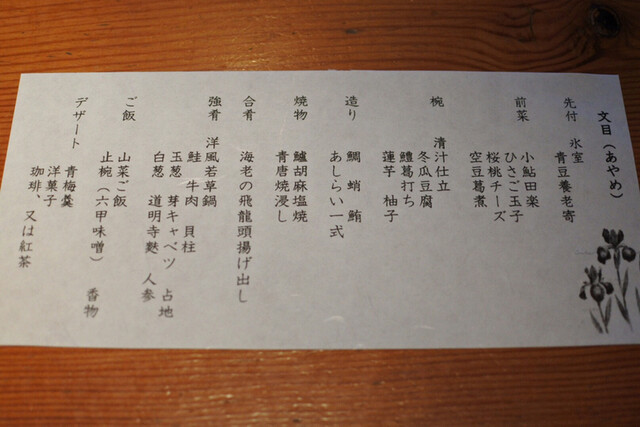 文目(あやめ)
先付 氷室
青豆養老寄
前菜 小鮎田楽
ひさご玉子
桜桃チーズ
空豆葛煮
椀 清汁仕立
冬瓜豆腐
鱧葛打ち
蓮芋 柚子
造り 鯛 蛸 鮪
あしらい一式
焼物 鱸胡麻塩焼
青唐焼浸し
合肴 海老の飛龍頭揚げ出し
強肴 洋風若草鍋
鮭 牛肉 貝柱
玉葱 芽キャベツ 占地
白葱 道明寺麩 人参
ご飯 山菜ご飯
止椀(六甲味噌) 香物
デザート 青梅羹
洋菓子
珈琲、又は紅茶